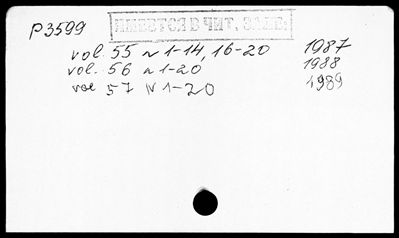 P3599
ИМЕЕТСЯ В ЧИТ. ЗАЛЕ.
vol. 55 N 1-14, 16-20 1987
vol. 56 N 1-20 1988
vol 57 N 1-20 1989